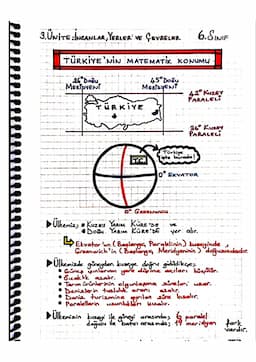 3.ÜNİTE: İNSANLAR, YERLER VE ÇEVRELER 6.SINIF
TÜRKİYE'NİN MATEMATİK KONUMU
26° Doğu Meridyeni 45° Doğu Meridyeni
42° Kuzey Paraleli
TÜRKİYE
36° Kuzey Paraleli
Türkiye işte burada!
0° EKVATOR
0° GREENWICH
Ülkemiz; * KUZEY YARIM KÜRE'DE ve
* DOĞU YARIM KÜRE'DE yer alır.
Ekvator'un (Başlangıç Paralelinin) kuzeyinde,
Greenwich'in (Başlangıç Meridyeninin) doğusundadır.
Ülkemizde güneyden kuzeye doğru gidildikçe;
Güneş ışınlarının yere düşme açıları küçülür.
Sıcaklık azalır.
Tarım ürünlerinin olgunlaşma süreleri uzar.
Denizlerin tuzluluk oranı azalır.
Deniz turizmine ayrılan süre kısalır.
Paralellerin uzunlukları azalır.
Ülkemizin kuzeyi ile güneyi arasında; 6 paralel
doğusu ile batısı arasında; 19 meridyen fark vardır.